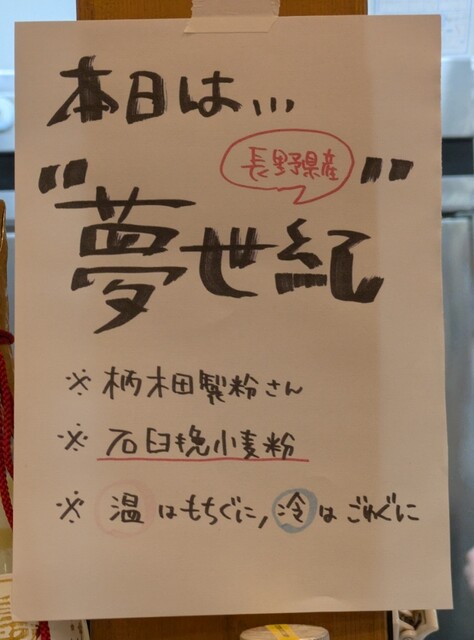 本日は...
長野県産
"夢世紀"
※ 柄木田製粉さん
※ 石臼挽小麦粉
※ 温はもちぐに,冷はごわぐに